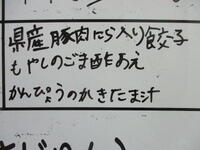 県産豚肉にら入り餃子
もやしのごま酢あえ
かんぴょうのかきたま汁